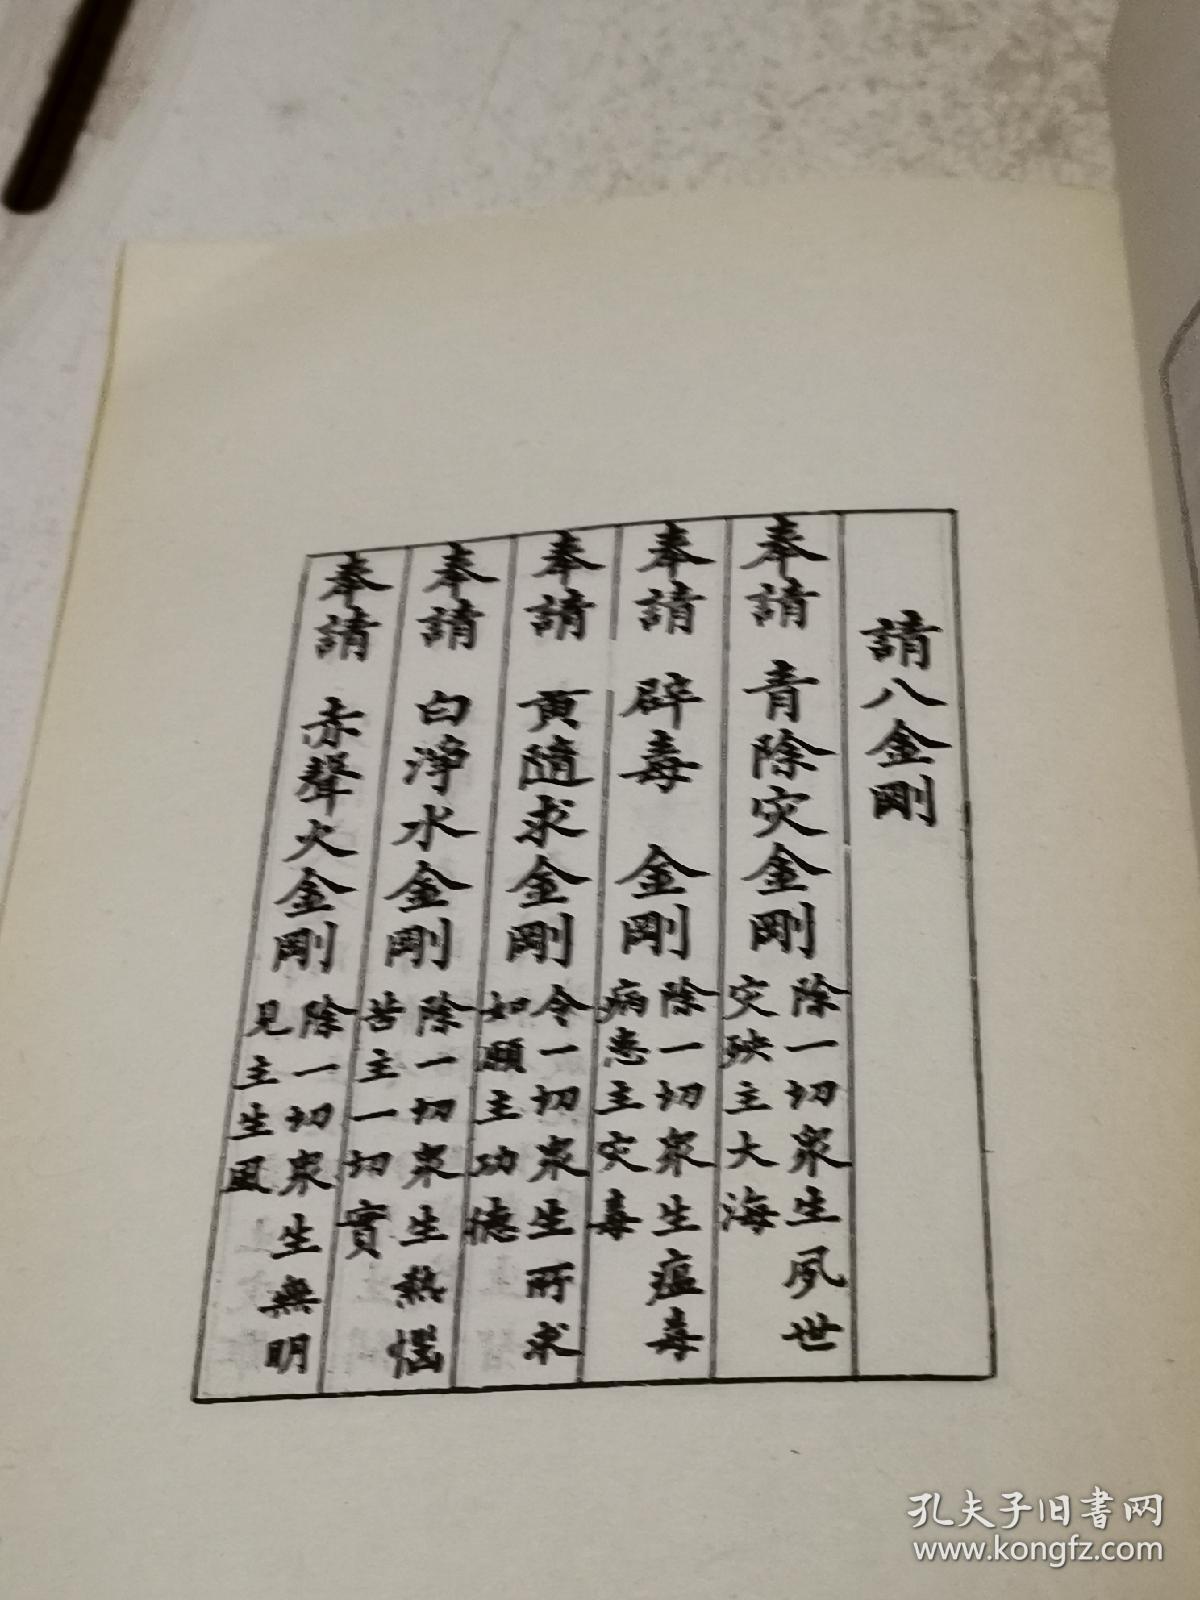 請八金剛
奉請 青除灾金剛 除一切衆生夙世
灾殃主大海
奉請 辟毒 金剛 除一切衆生瘟毒
病患主灾毒
奉請 黄隨求金剛 令一切衆生所求
如願主功德
奉請 白淨水金剛 除一切衆生熱惱
苦主一切寶
奉請 赤聲火金剛 除一切衆生無明
見主生風
孔夫子旧书网
www.kongfz.com